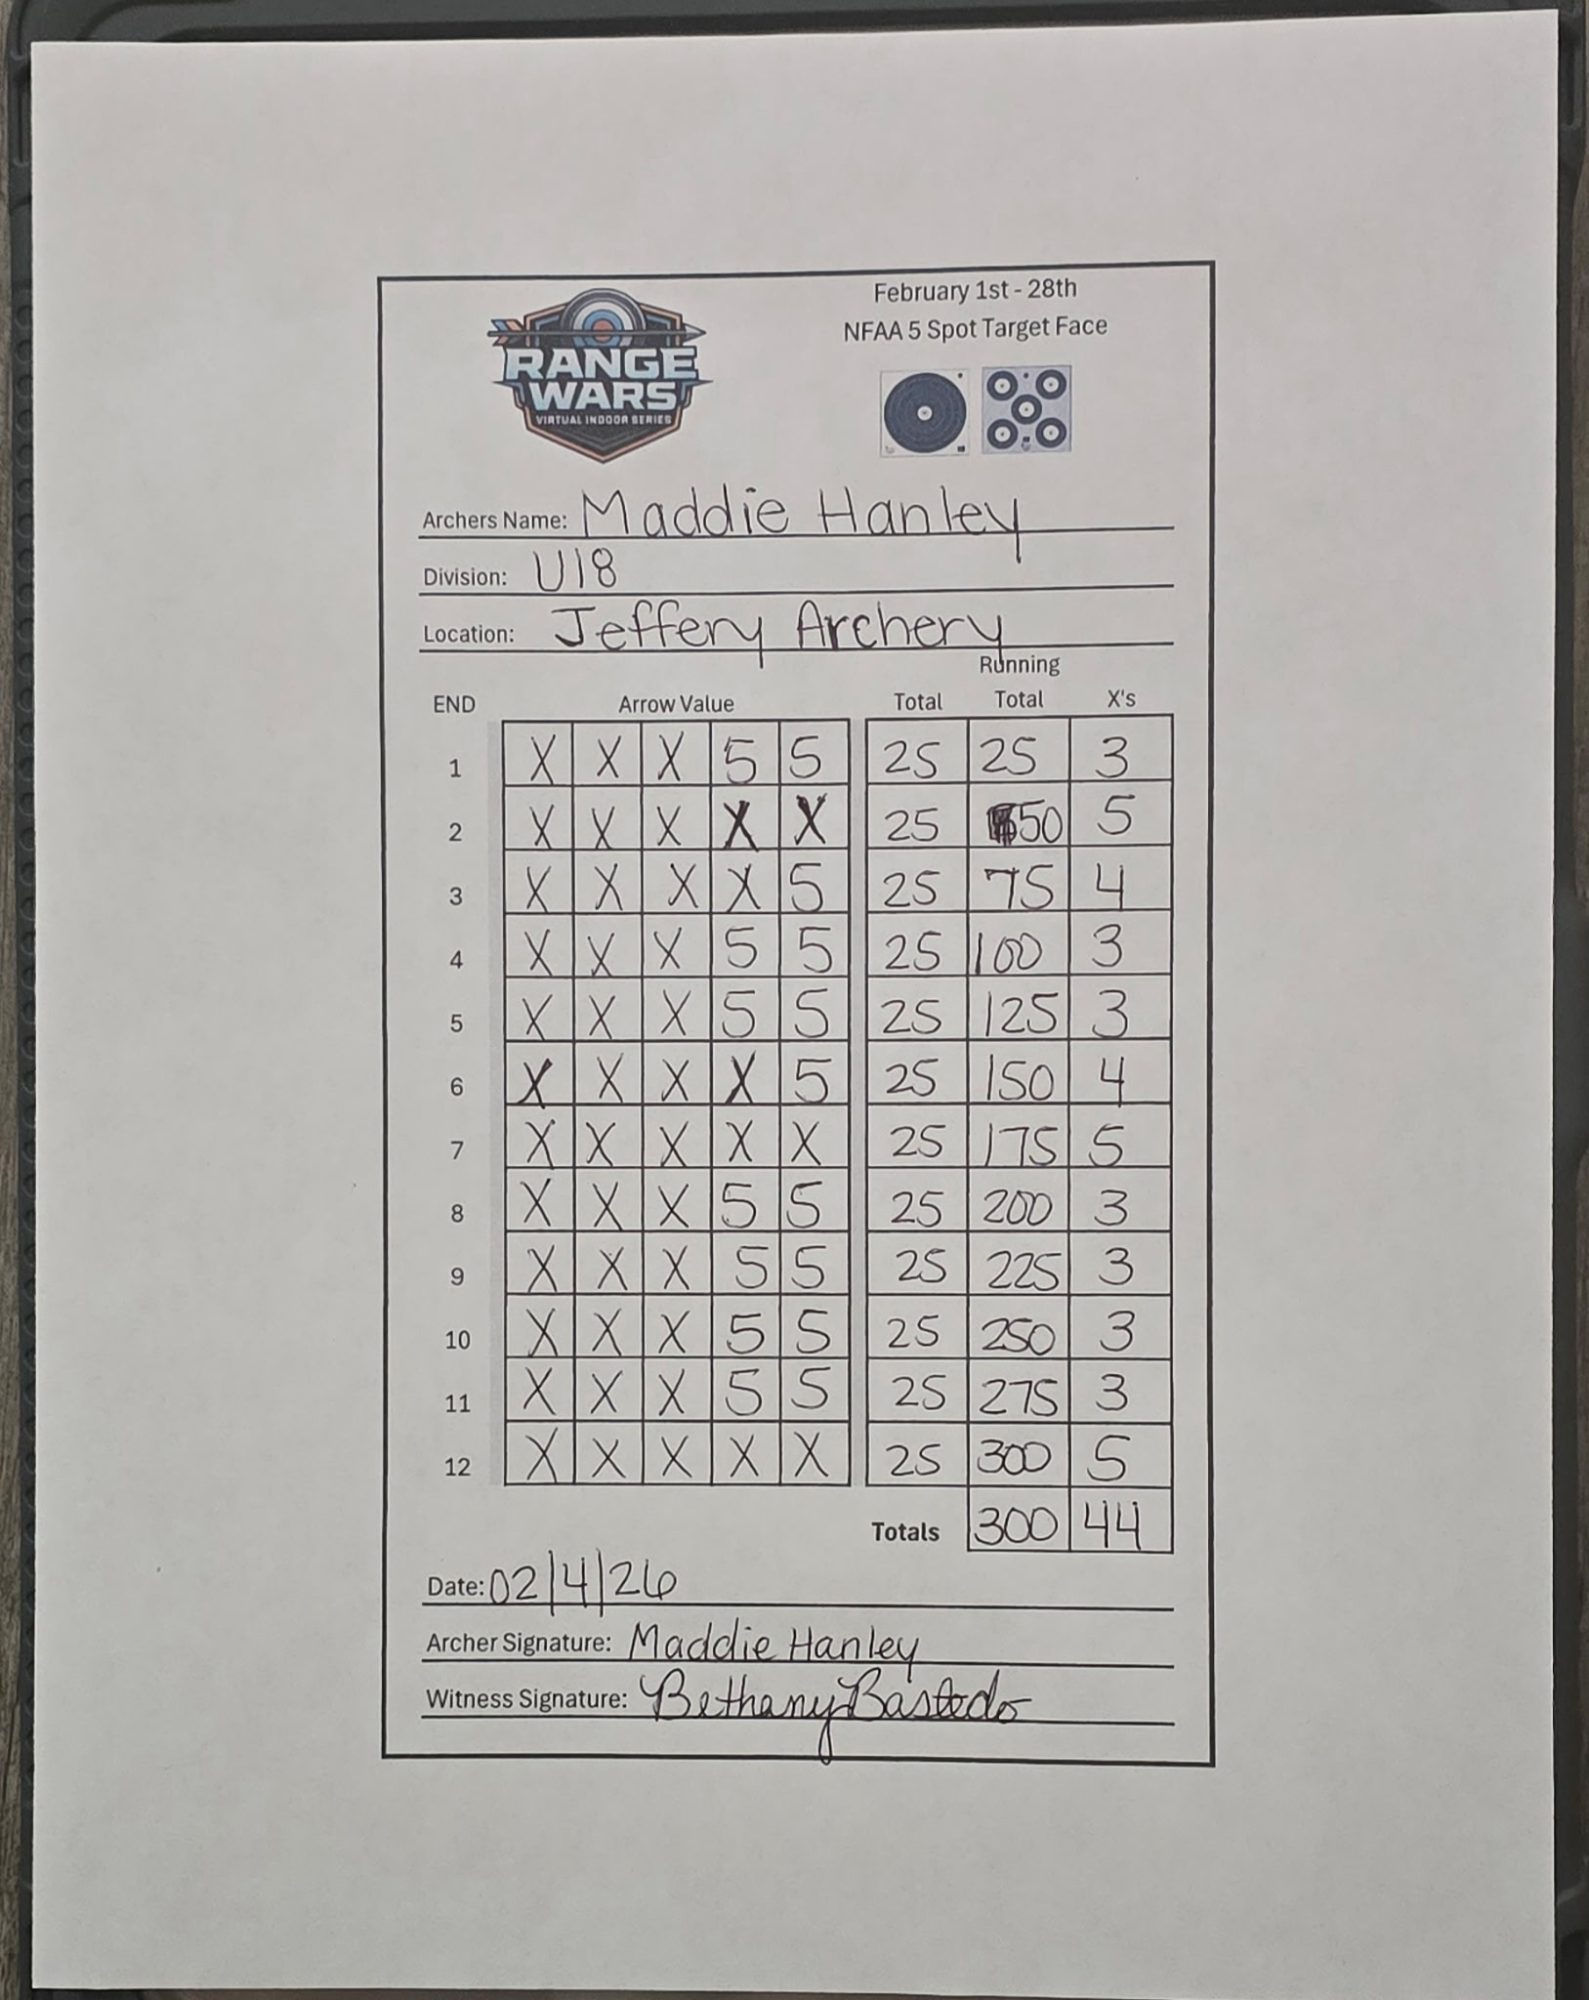 RANGE
WARS
VIRTUAL INDOOR SERIES
February 1st - 28th
NFAA 5 Spot Target Face
Archers Name: Maddie Hanley
Division: U18
Location: Jeffery Archery
Running
END Arrow Value Total Total X's
1 X X X 5 5 25 25 3
2 X X X X X 25 50 5
3 X X X X 5 25 75 4
4 X X X 5 5 25 100 3
5 X X X 5 5 25 125 3
6 X X X X 5 25 150 4
7 X X X X X 25 175 5
8 X X X 5 5 25 200 3
9 X X X 5 5 25 225 3
10 X X X 5 5 25 250 3
11 X X X 5 5 25 275 3
12 X X X X X 25 300 5
Totals 300 44
Date: 02/4/26
Archer Signature: Maddie Hanley
Witness Signature: Bethany Bastedo